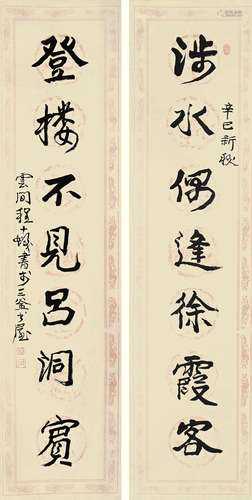 涉水偶逢徐霞客
辛巳新秋
登楼不見呂洞賓
雲间程十髮書於三釜書屋